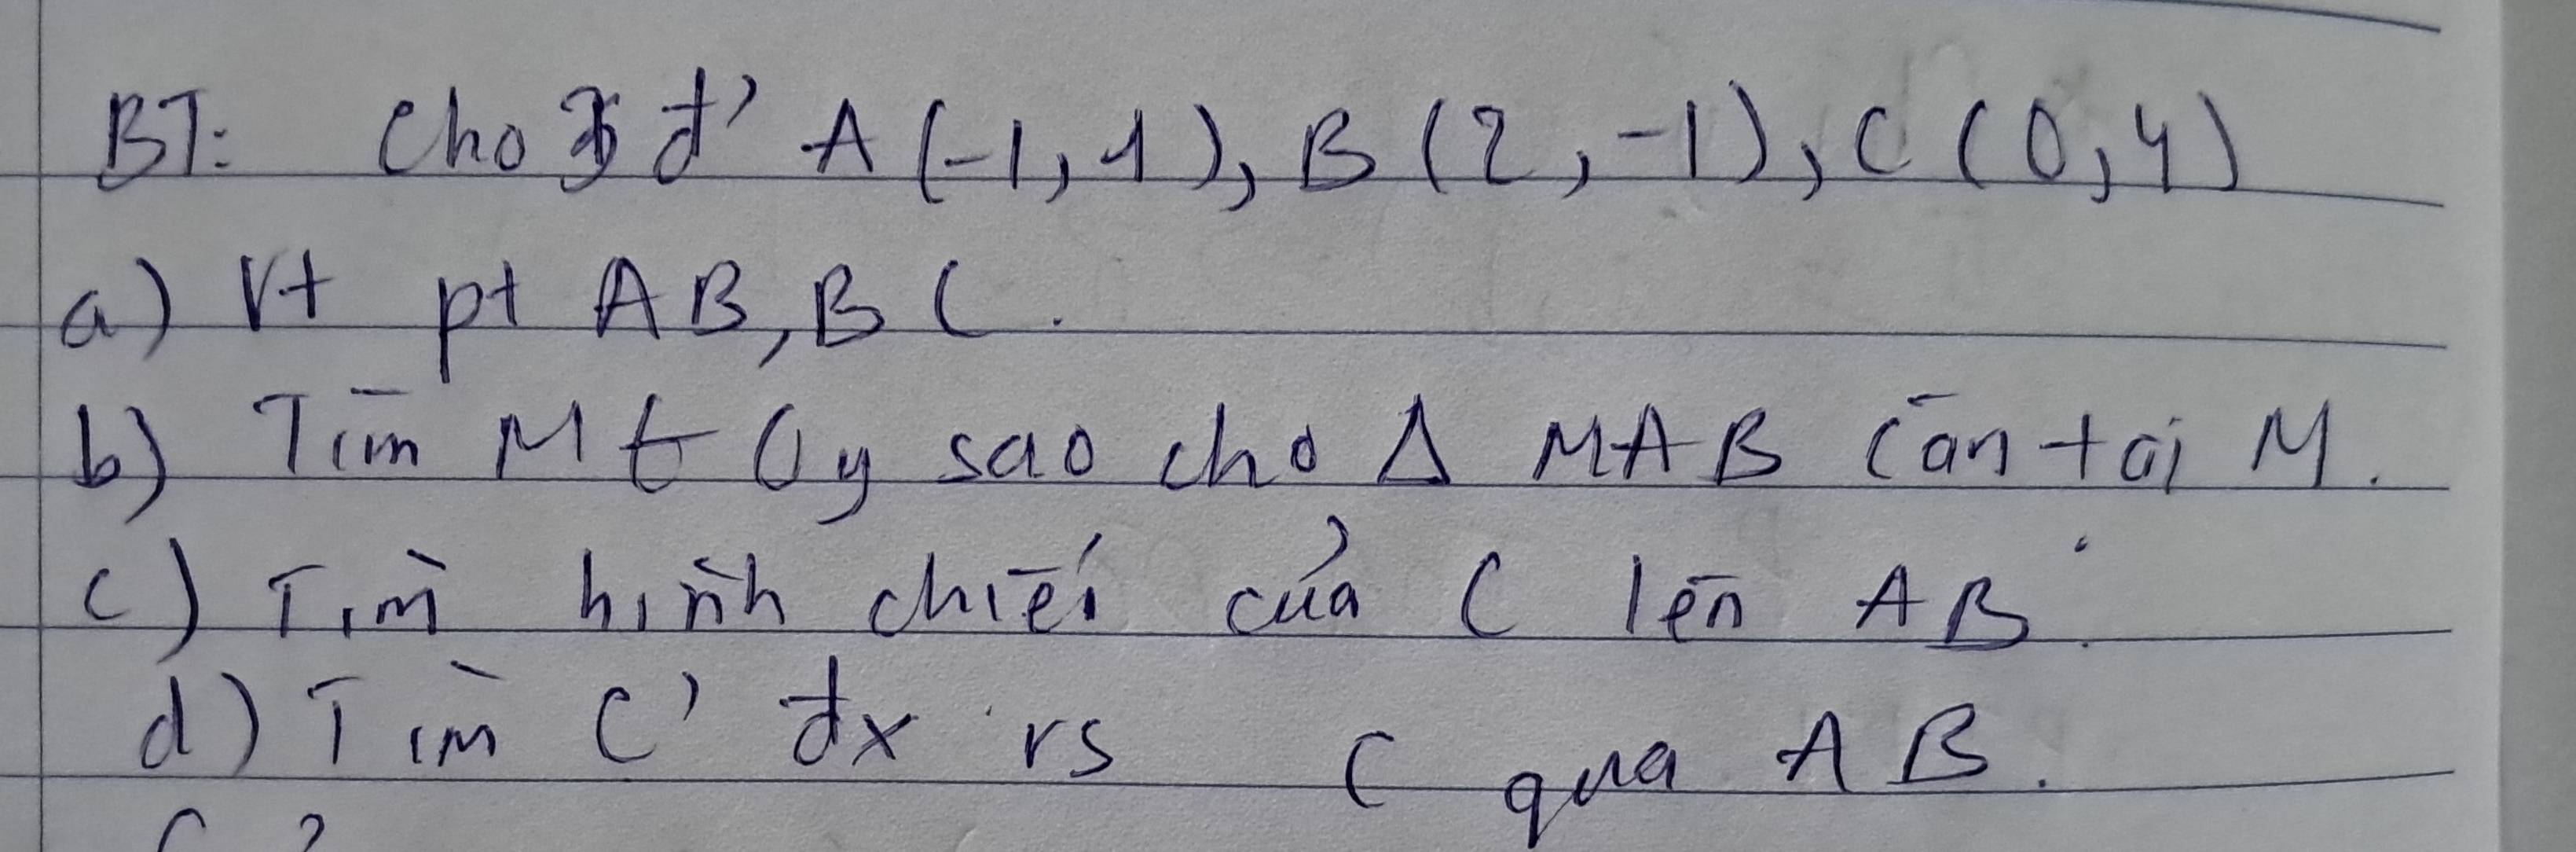 BT: Cho 3 đ' A(-1,1), B(2,-1), C(0,4)
a) Vt pt AB, BC.
b) Tìm M ∈ Oy sao cho Δ MAB cân tại M.
c) Tìm hình chiếu của C lên AB.
d) Tìm C' đx vs C qua AB.